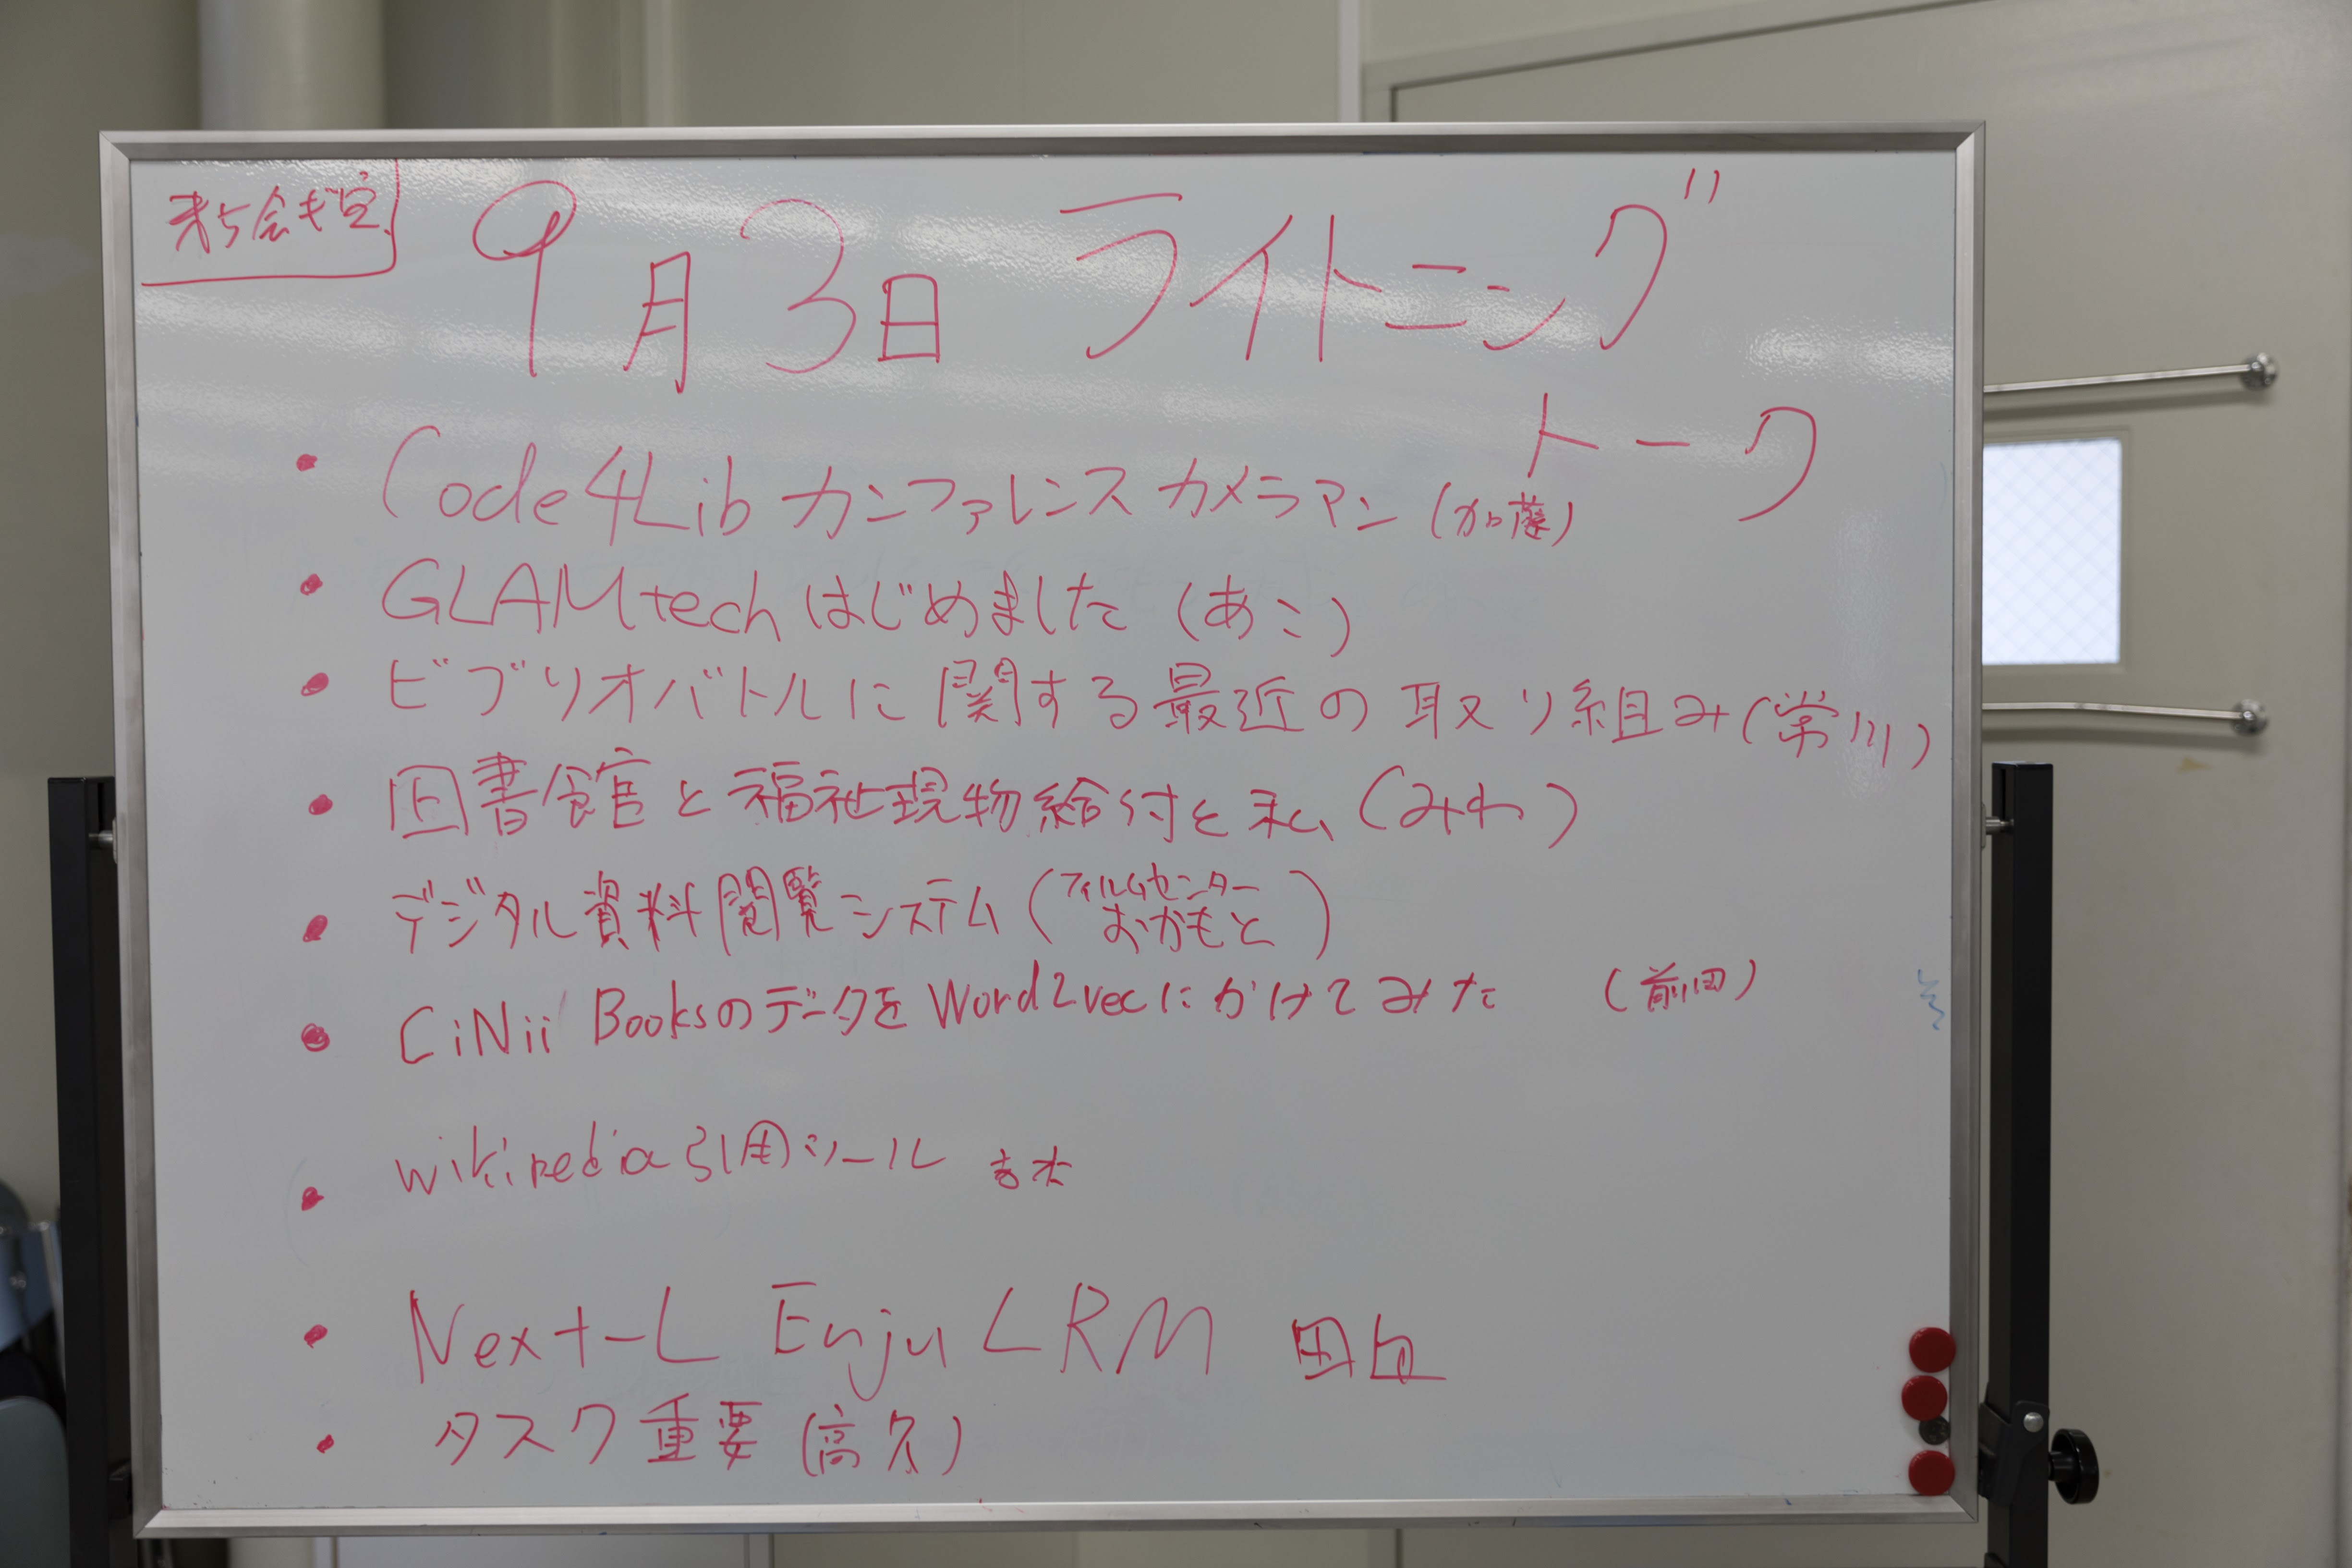 9月3日 ライトニング
トーク
・Code4Lib カンファレンス カメラマン (加藤)
・GLAMtech はじめました (あこ)
・ビブリオバトルに関する最近の取り組み (常川)
・図書館と福祉現物給付と私 (みわ)
・デジタル資料閲覧システム (フィルムセンター おかもと)
・CiNii Booksのデータを Word2vecに かけてみた (前田)
・wikipedia 引用ツール 吉本
・Next-L Enju LRM 田辺
・タスク重要 (高久)